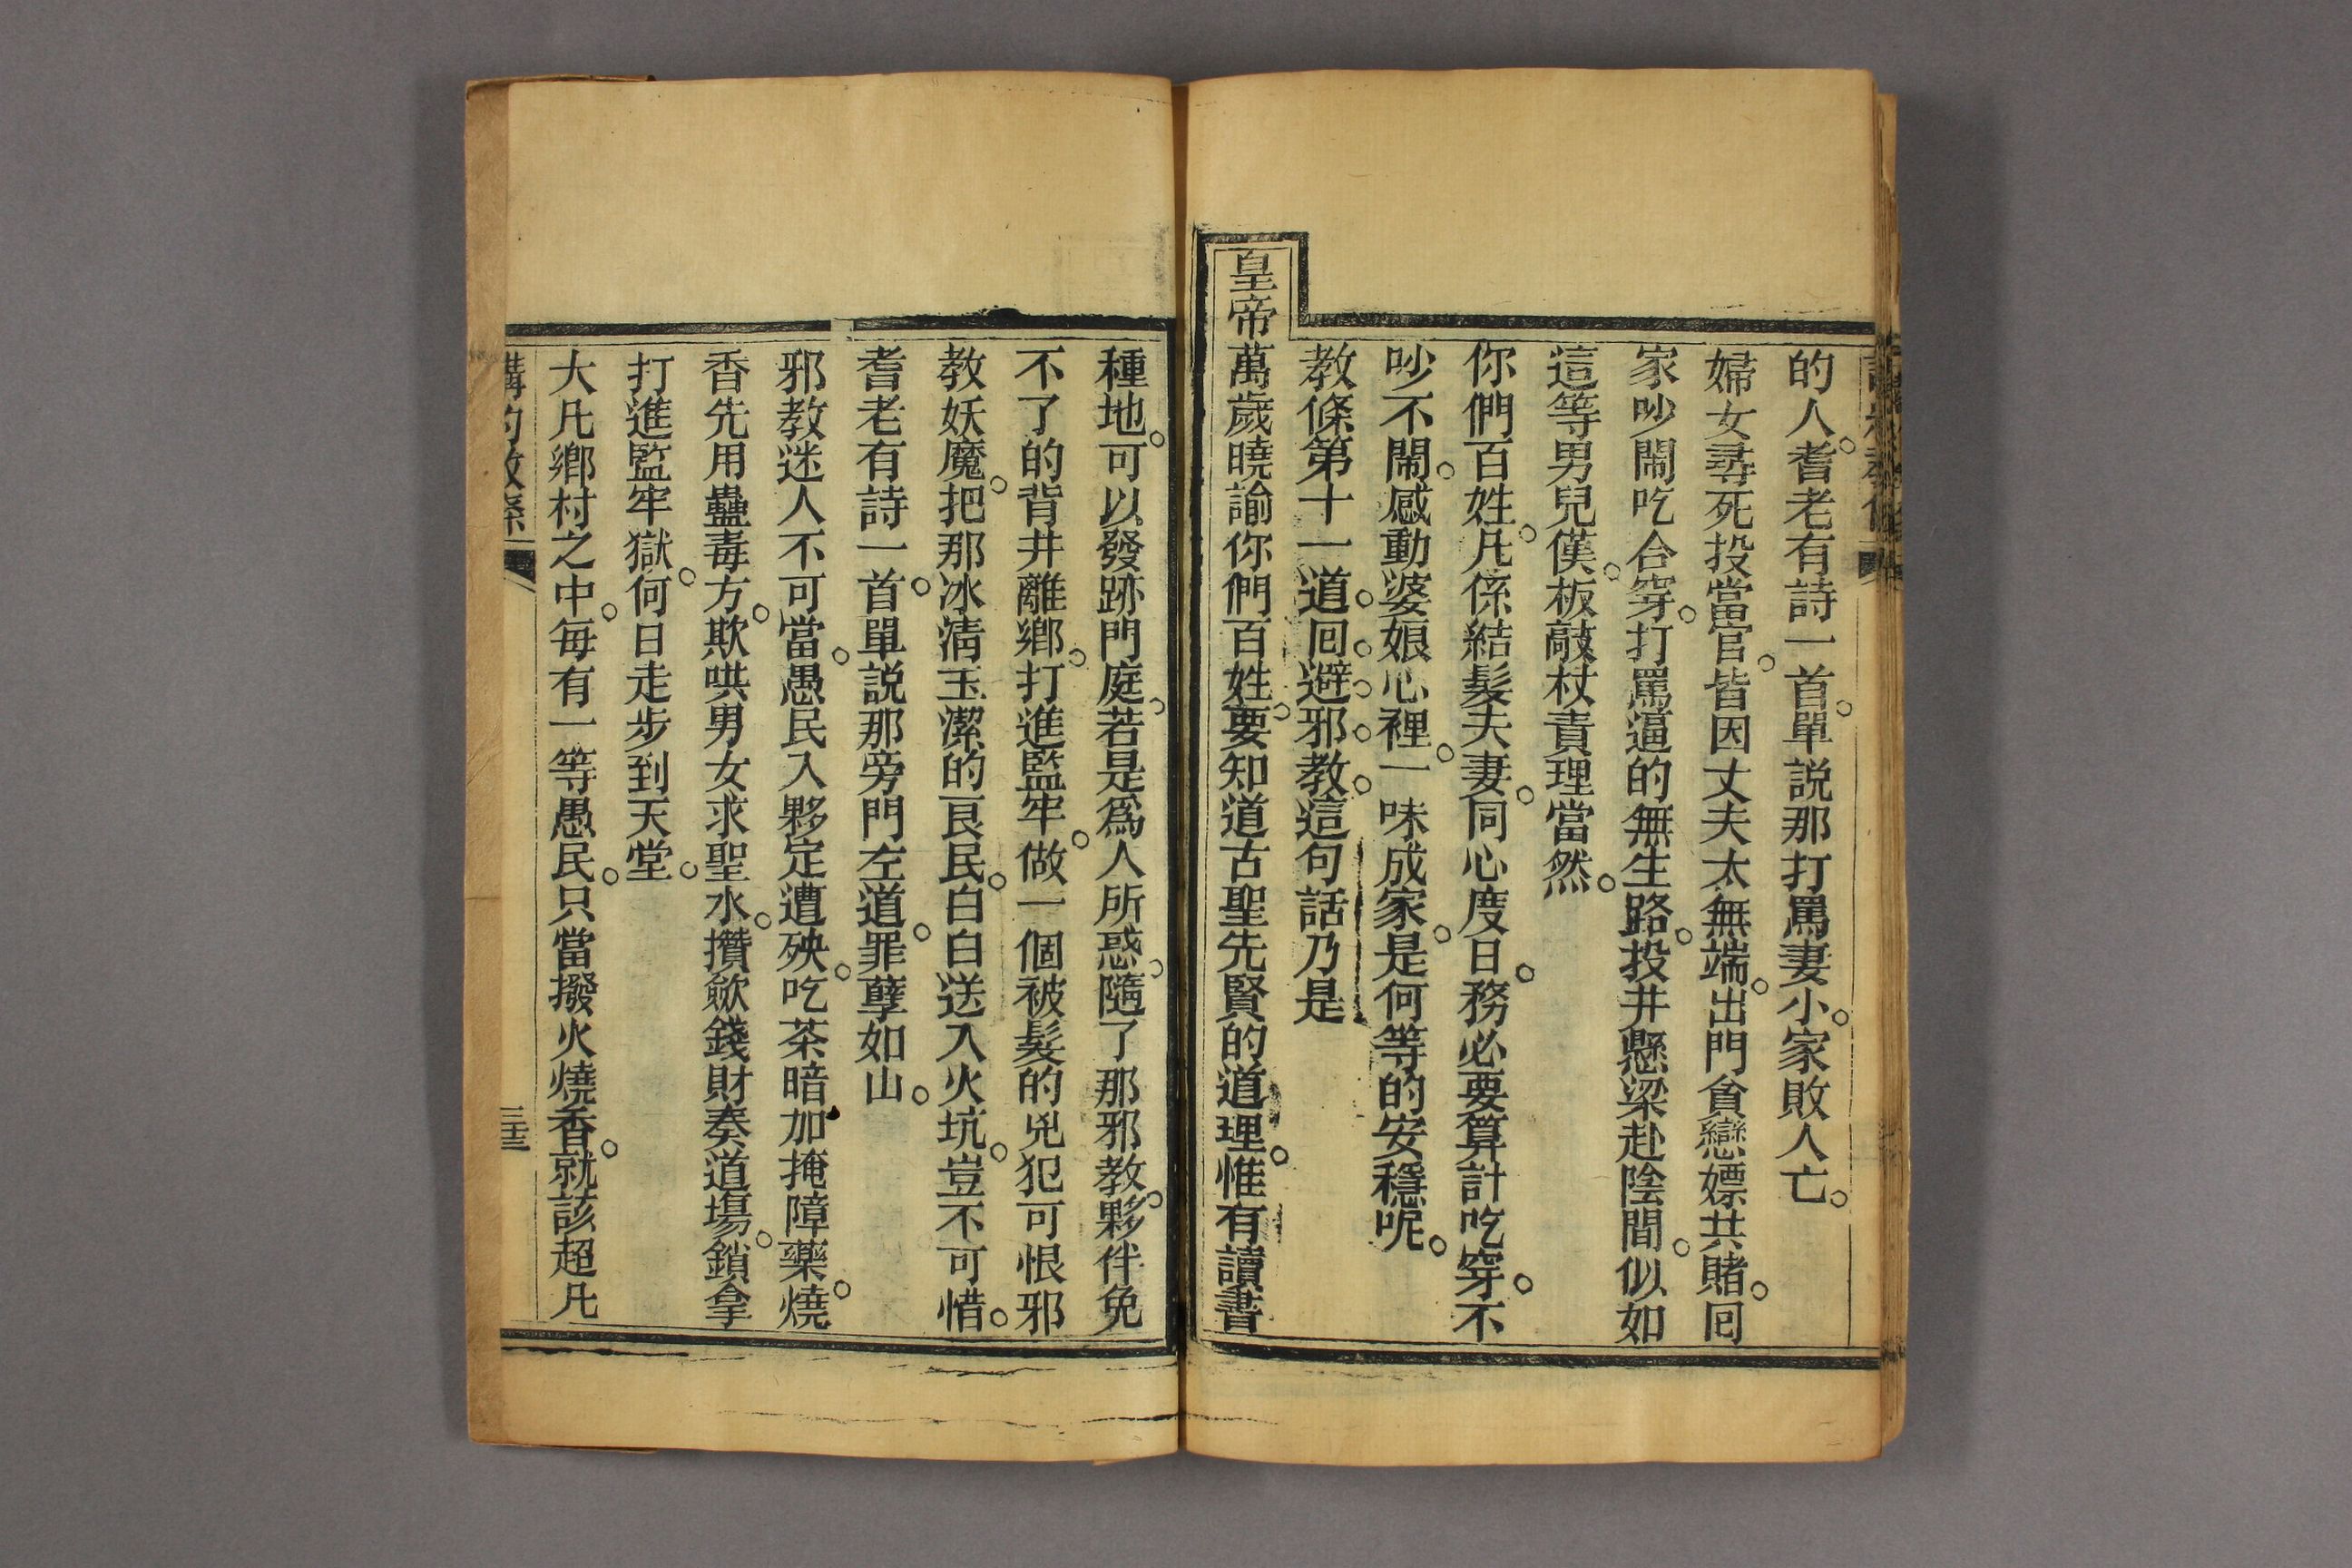 的人。耆老有詩一首。單説那打罵妻小。家敗人亡。
婦女尋死投當官。皆因丈夫太無端。出門貪戀嫖共賭。囘
家吵鬧吃合穿。打罵逼的無生路。投井懸梁赴陰間。似如
這等男兒漢。板敲杖責理當然。
你們百姓。凡係結髮夫妻。同心度日。務必要算計吃穿。不
吵不鬧。感動婆娘心裡。一味成家。是何等的安穩呢。
教條第十一道。回。避。邪。教。這句話乃是
皇帝萬歲曉諭你們百姓。要知道古聖先賢的道理。惟有讀書
種地。可以發跡門庭。若是爲人所惑。隨了那邪教。夥伴免
不了的背井離鄉。打進監牢。做一個被髮的兇犯可恨邪
教妖魔。把那冰清玉潔的良民。白白送入火坑。豈不可惜。
耆老有詩一首。單説那旁門左道。罪孽如山。
邪教迷人不可當。愚民入夥定遭殃。吃茶暗加掩障藥。燒
香先用蠱毒方。欺哄男女求聖水。攢歛錢財奏道場。鎖拿
打進監牢獄。何日走步到天堂。
大凡鄉村之中。每有一等愚民。只當撥火燒香。就該超凡
講約教條